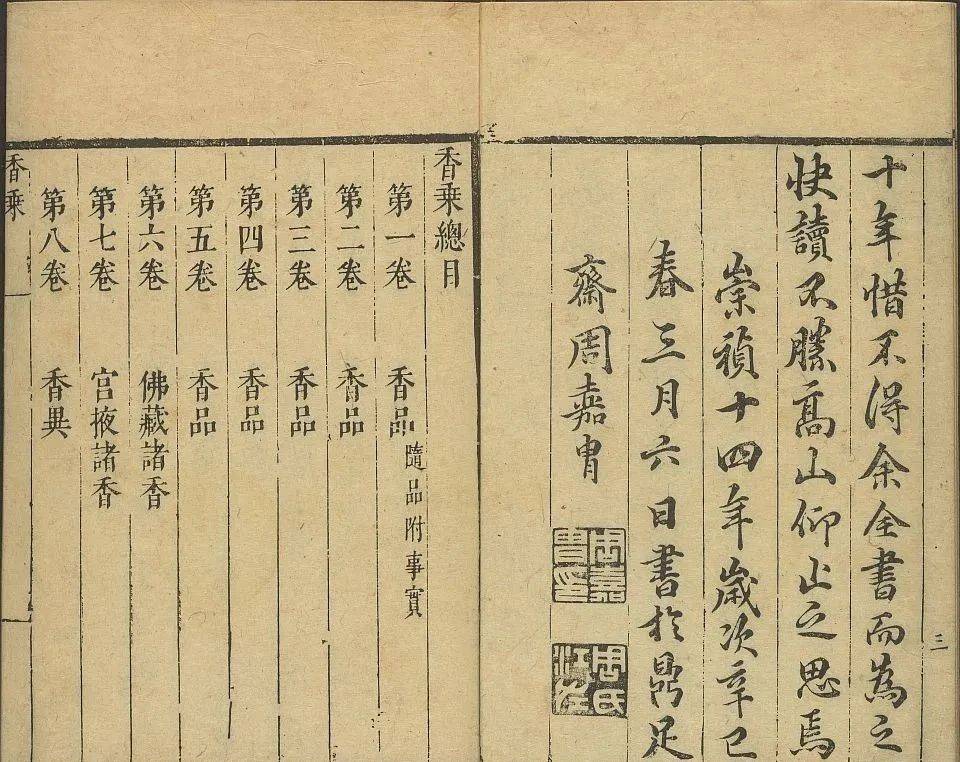 十年惜不得余全書而為之
快讀不勝高山仰止之思焉
崇禎十四年歲次辛巳
春三月六日書於鼎足
齋周嘉胄
周嘉胄印
周氏江左
三
香乘總目
第一卷 香品 隨品附事實
第二卷 香品
第三卷 香品
第四卷 香品
第五卷 香品
第六卷 佛藏諸香
第七卷 宮掖諸香
第八卷 香異
香乘